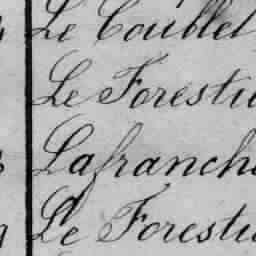 Le Coublet
Le Foresti
Lafranch
Le Foresti